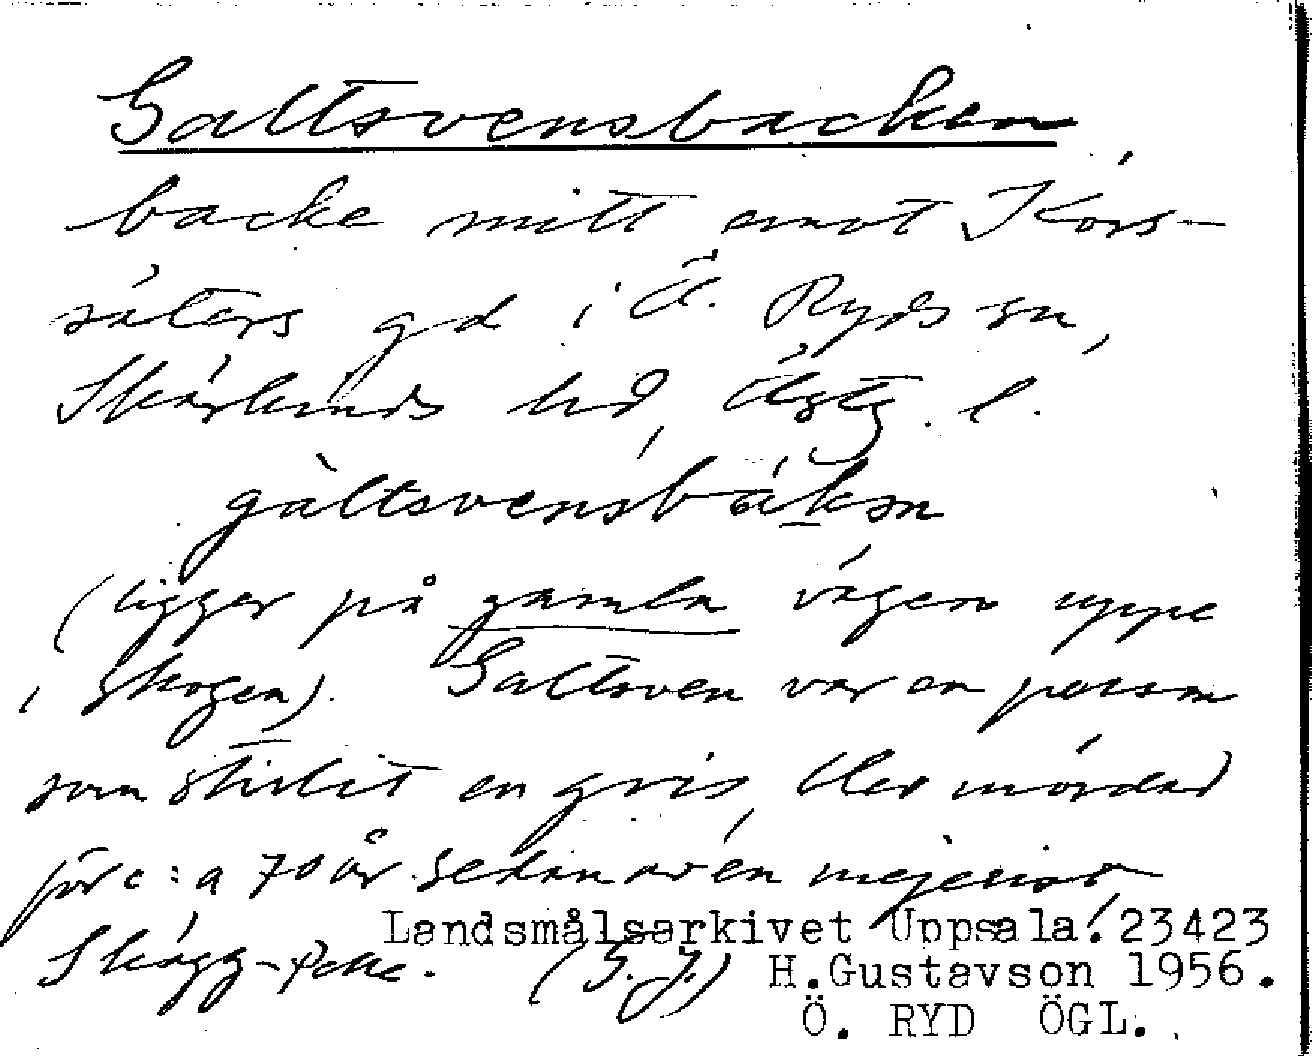 Galtsvensbacken
backe mitt emot Kors-
säters gd i Ö. Ryds sn,
Skärkinds hd, Östg. l.
gàltsvensbákən
(ligger på gamla vägen uppe
i skogen). Galtsven var en person
som stulit en gris, blev mördad
för c:a 70 år sedan av en mejerist,
Skägg-Pelle. (G. J.)
Landsmålsarkivet Uppsala. 23423
H.Gustavson 1956.
Ö. RYD ÖGL.